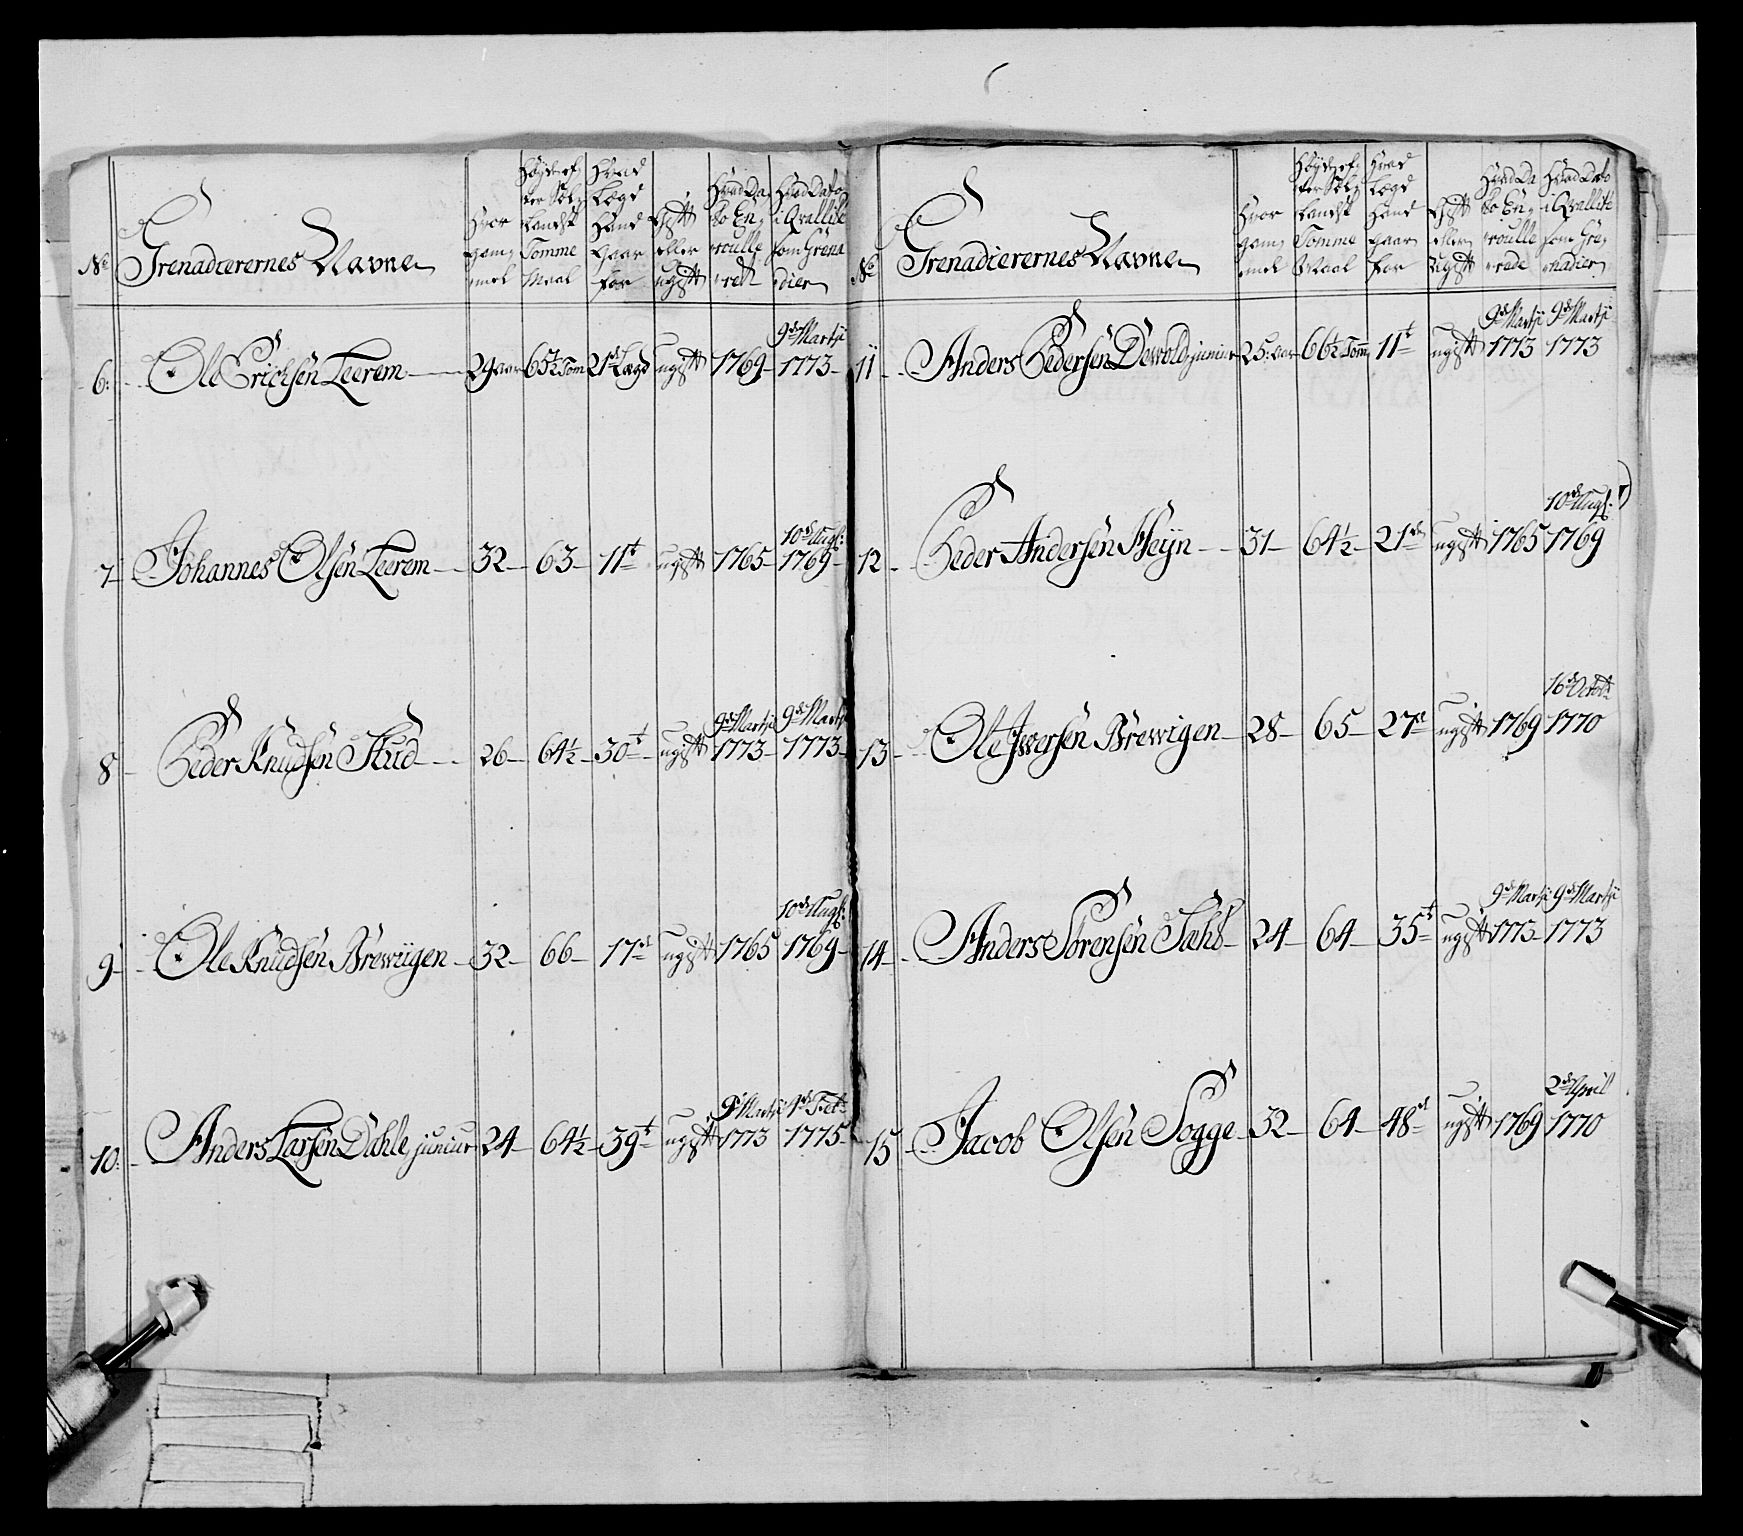 No
Grenadeerernes Navne
Hvor gam mel
Høyde ef ter Sely Landsk Tomme Maal
Hvad Lægd Hand Gaar for
Gift eller ugift
Hvad Da to En roulle ret
Hvad Dato i Qvallite som Grena dier
6. Ole Erichsen Leerem 29 aar 65½ Tom 21de Lægd ugift 1769 9de Martji 1773
7 Johannes Olsen Leerem 32 63 11t ugift 1765 10de Augs: 1769
8 Peder Knudsen Stud 26 64½ 30t ugift 9de Martji 1773 9de Martji 1773
9 Ole Knudsen Brewiigen 32 66 17de ugift 1765 10de Augs: 1769
10. Anders Larsen Dahle juniur 24 64½ 39t ugift 9de Martji 1773 1de Feb: 1775
No
Grenadierernes Navne
Hvor gam mel
Høyde ef ter Sely Landsk Tomme Maal
Hvad Lægd Hand gaar for
Gift eller Ugift
Hvad Da to En roulle rede
Hvad Dato i Qvallite som Gre nadier
11 Anders Pedersen Dewold juniur 25 aar 66½ Tom 11t ugift 9de Martji 1773 9de Martji 1773
12 Peder Andersen Heijn 31 64½ 21de ugift 1765 10de Augs: 1769
13 Ole Iwersen Brewigen 28 65 27de ugift 1769 16de Octobr 1770
14 Anders Sørensen Sæhb 24 64 35t ugift 9de Martji 1773 9de Martji 1773
15 Jacob Olsen Sogge 32 64 48de ugift 1769 2de April 1770